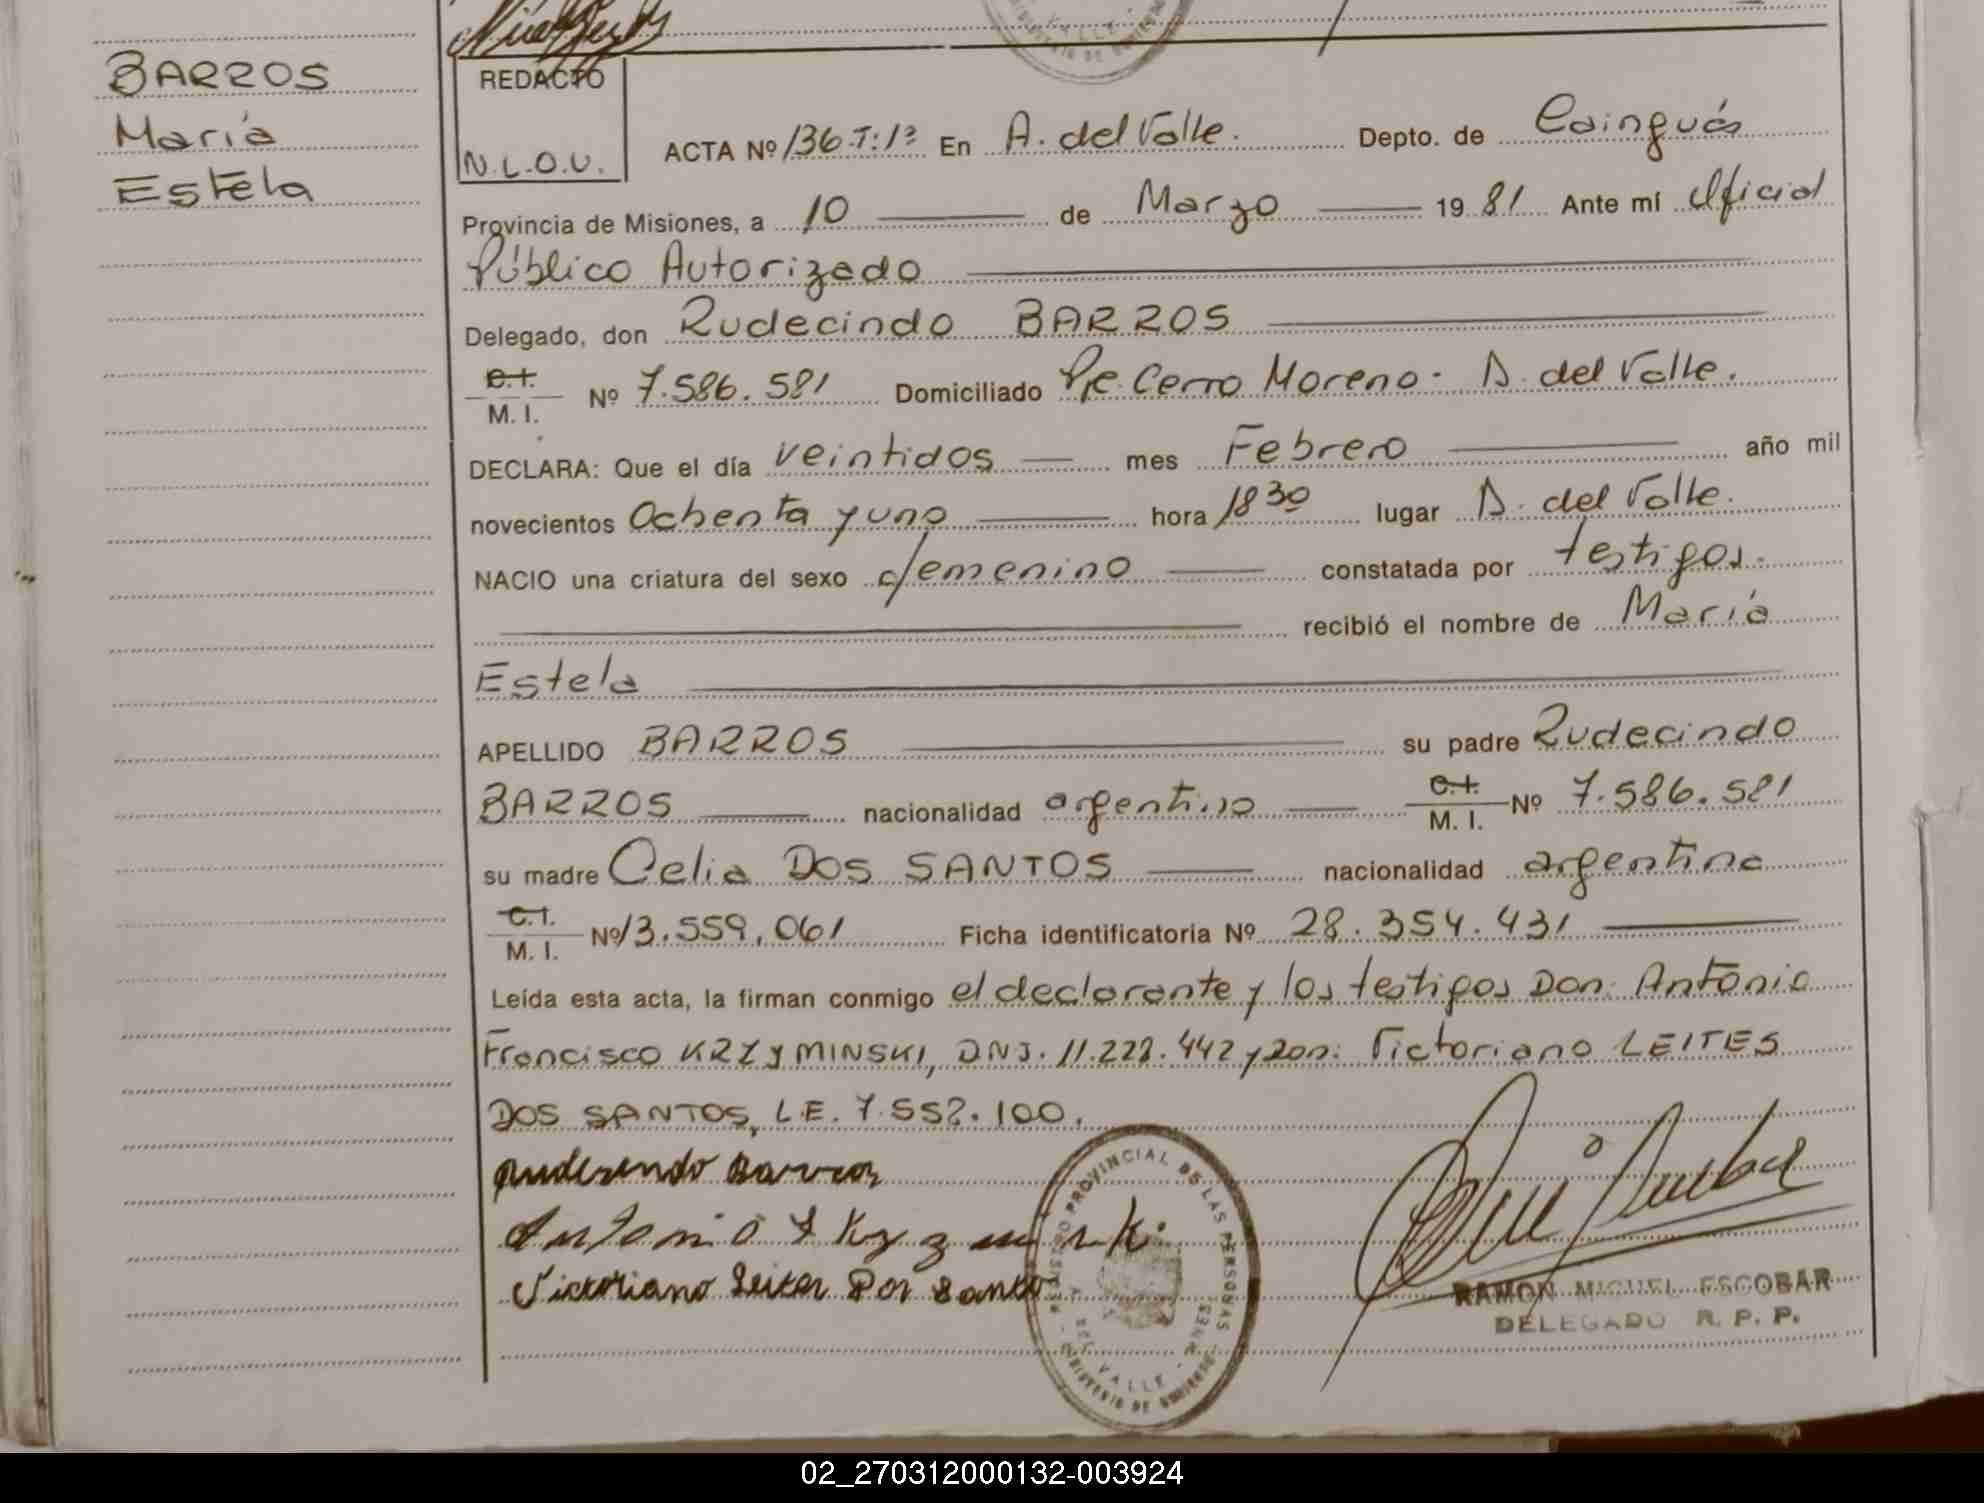 BARROS
María
Estela
REDACTO
N.L.O.V.
ACTA Nº 136-T:1º En A. del Valle. Depto. de Cainguás
Provincia de Misiones, a 10 de Marzo 19 81 Ante mí Oficial
Público Autorizado
Delegado, don Rudecindo BARROS
C.I. M. I. Nº 7.586.581 Domiciliado Pje. Cerro Moreno - A. del Valle.
DECLARA: Que el día veintidos mes Febrero año mil
novecientos Ochenta y uno hora 18 30 lugar A. del Valle.
NACIO una criatura del sexo femenino constatada por testigos.
recibió el nombre de María
Estela
APELLIDO BARROS su padre Rudecindo
BARROS nacionalidad argentino C.I. M. I. Nº 7.586.581
su madre Celia DOS SANTOS nacionalidad argentina
C.I. M. I. Nº 13.559.061 Ficha identificatoria Nº 28.354.431
Leída esta acta, la firman conmigo el declarante y los testigos Don: Antonio
Francisco KRZYMINSKI, DNI. 11.222.442 y Don: Victoriano LEITES
DOS SANTOS, L.E. 7.552.100.
Rudesendo Barros
Antonio F
Victoriano Leites Dos Santo
REGISTRO PROVINCIAL DE LAS PERSONAS
DEL VALLE
RAMON MIGUEL ESCOBAR
DELEGADO R. P. P.
02_270312000132-003924